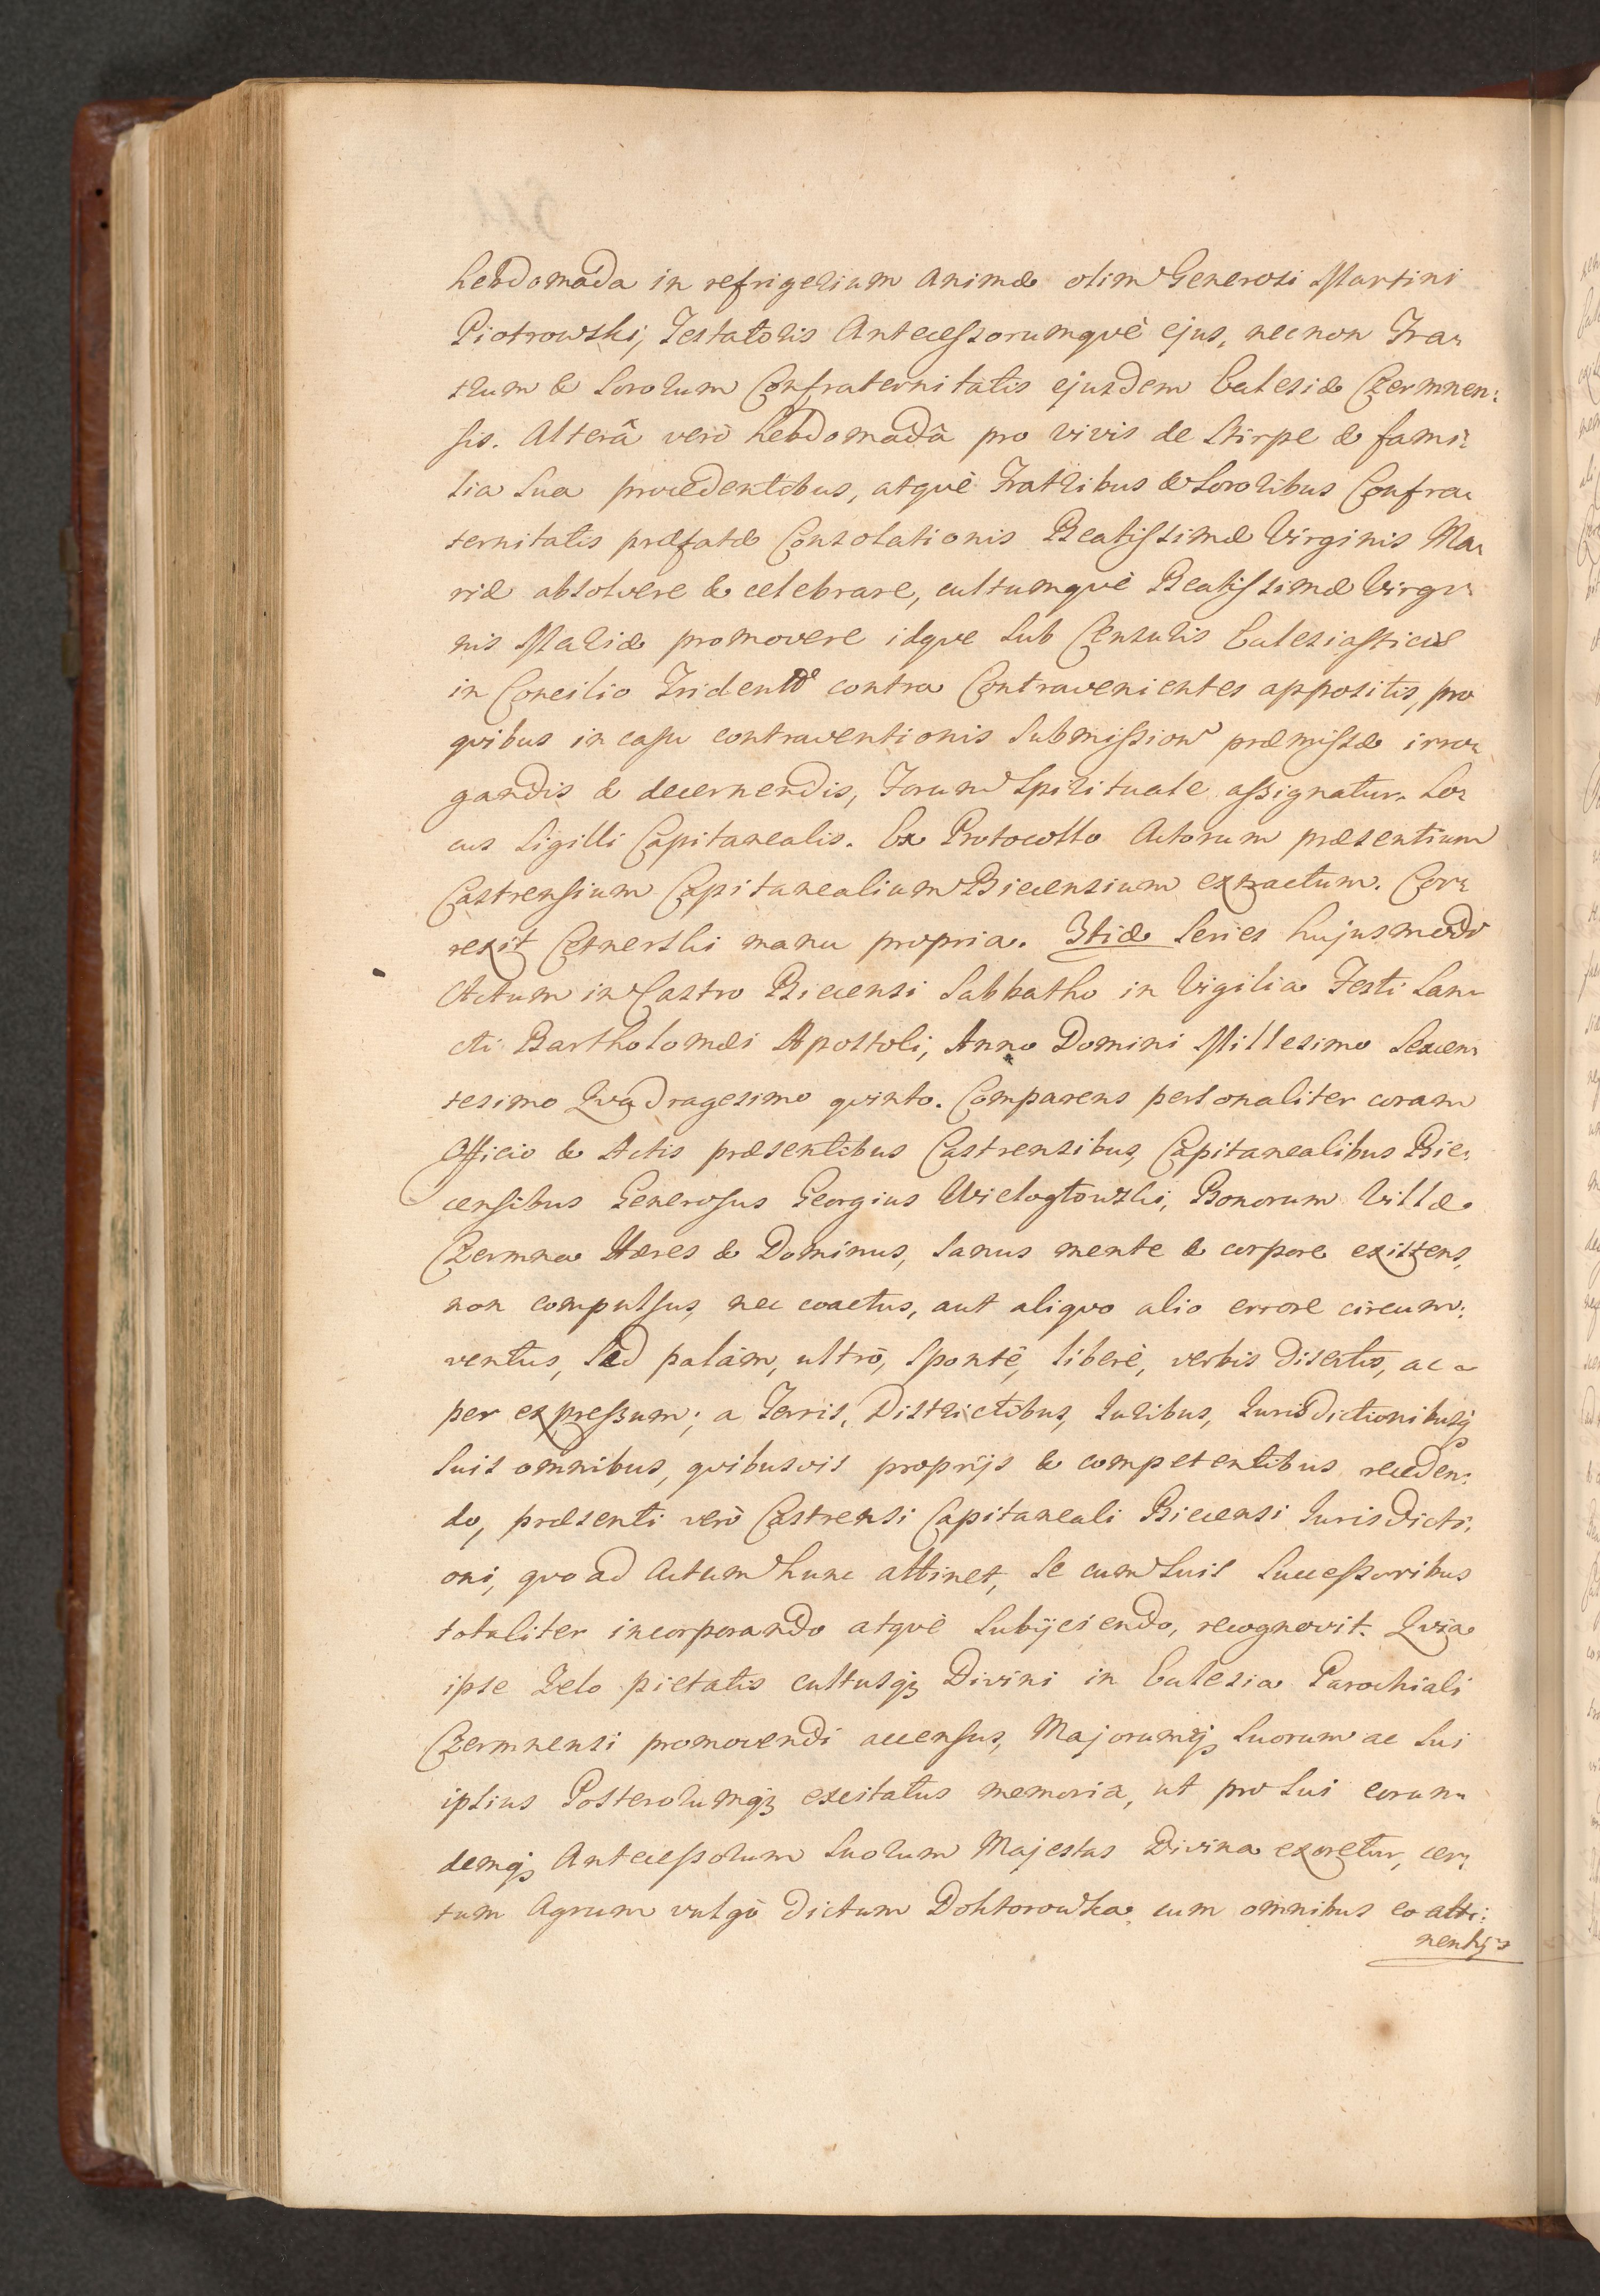 hebdomada in refrigerium animæ olim Generosi Martini
Piotrowski, Testatoris Antecessorumqvè ejus, necnon Fra-
trum & Sororum Confraternitatis ejusdem Ecclesiæ Czermnen:
sis. Alterâ verò hebdomadâ pro vivis de Stirpe & fami-
lia Sua procedentibus, atqvè Fratribus & Sororibus Confra-
ternitatis præfatæ Consolationis Beatissimæ Virginis Ma-
riæ absolvere & celebrare, cultumqvè Beatissimæ Virgi-
nis Mariæ promovere idqve Sub Censuris Ecclesiasticis
in Concilio Tridentõ contra Contravenientes appositis, pro
qvibus in casu contraventionis Submission præmissæ irro-
gandis & decernendis, Forum Spirituale assignatur. Lo-
cus Sigilli Capitanealis. Ex Protocollo Actorum præsentium
Castrensium Capitanealium Biecensium extractum. Cor-
rexit Cetnerski manu propria. Aliæ Series hujusmodi
Actum in Castro Biecensi Sabbatho in Vigilia Festi San-
cti Bartholomæi Apostoli, Anno Domini Millesimo Sexcen-
tesimo Qvadragesimo qvinto. Comparens personaliter coram
Officio & Actis præsentibus Castrensibus, Capitanealibus Bie-
censibus Generosus Georgius Wielogłowski, Bonorum Villæ
Czermna Hæres & Dominus, Sanus mente & corpore existens,
non compulsus, nec coactus, aut aliqvo alio errore circum:
ventus, Sed palàm, ultrò, Spontè, liberè, verbis disertis, ac
per expressum; a Terris, Districtibus, Iuribus, Iurisdictionibusq
Suis omnibus, qvibusvis proprijs & competentibus receden:
do, præsenti verò Castrensi Capitaneali Biecensi Iurisdicti-
oni, qvo ad Actum hunc attinet, Se cum Suis Successoribus
totaliter incorporando atqvè Subijciendo, recognovit. Qvia
ipse Zelo pietatis cultusq Divini in Ecclesia Parochiali
Czermnensi promovendi accensus, Majorumq Suorum ac Sui
ipsius Posterorumq excitatus memoriâ, ut pro Sui eorun-
demq Antecessorum Suorum Majestas Divina exoretur, cer-
tum Agrum vulgò dictum Doktorowska cum omnibus eo atti:
nentijs